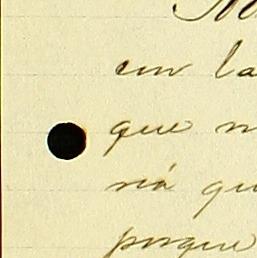 con la
que n
riá qu
porque